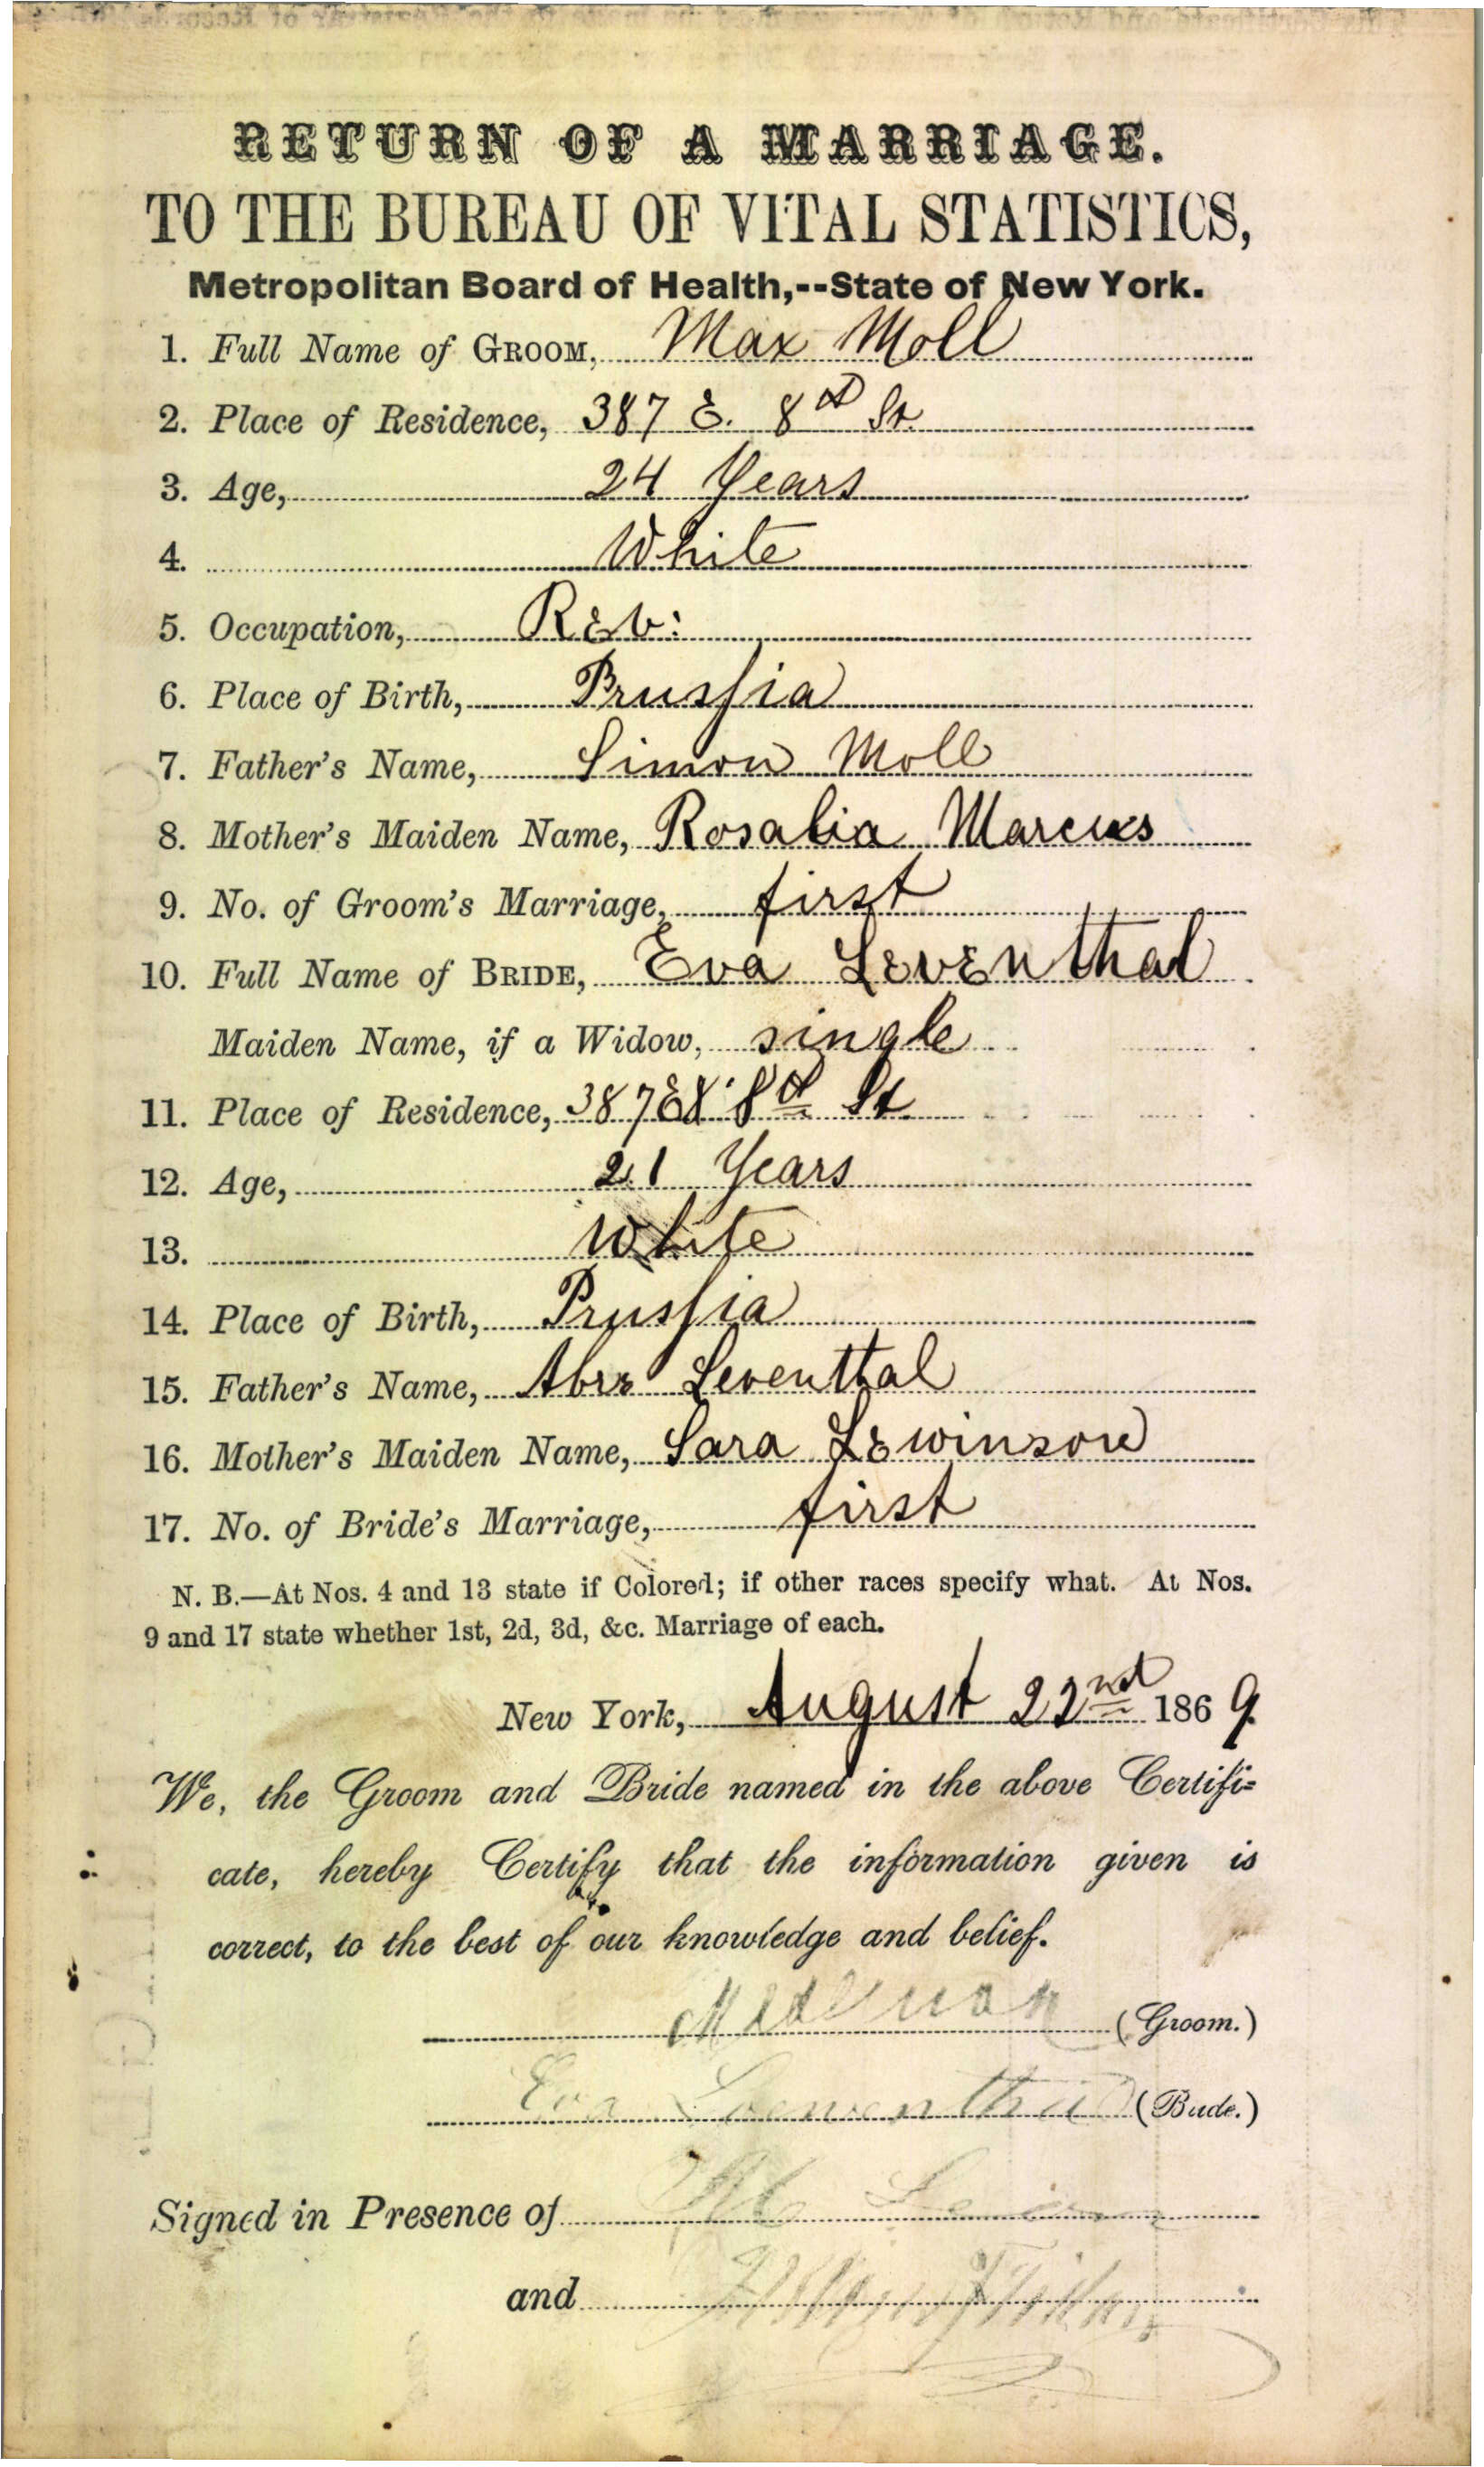 RETURN OF A MARRIAGE.
TO THE BUREAU OF VITAL STATISTICS,
Metropolitan Board of Health,--State of New York.
1. Full Name of GROOM, Max Moll
2. Place of Residence, 387 E. 8th St.
3. Age, 24 Years
4. White
5. Occupation, Rev:
6. Place of Birth, Prussia
7. Father's Name, Simon Moll
8. Mother's Maiden Name, Rosalia Marcus
9. No. of Groom's Marriage, first
10. Full Name of BRIDE, Eva Leventhal
Maiden Name, if a Widow, single
11. Place of Residence, 387 E 8th St
12. Age, 21 Years
13. White
14. Place of Birth, Prussia
15. Father's Name, Leventhal
16. Mother's Maiden Name, Sara Lewinson
17. No. of Bride's Marriage, first
N. B.—At Nos. 4 and 13 state if Colored; if other races specify what. At Nos.
9 and 17 state whether 1st, 2d, 3d, &c. Marriage of each.
New York, August 22nd 1869
We, the Groom and Bride named in the above Certifi=
cate, hereby Certify that the information given is
correct, to the best of our knowledge and belief.
(Groom.)
Eva Loewenthal (Bride.)
Signed in Presence of
and